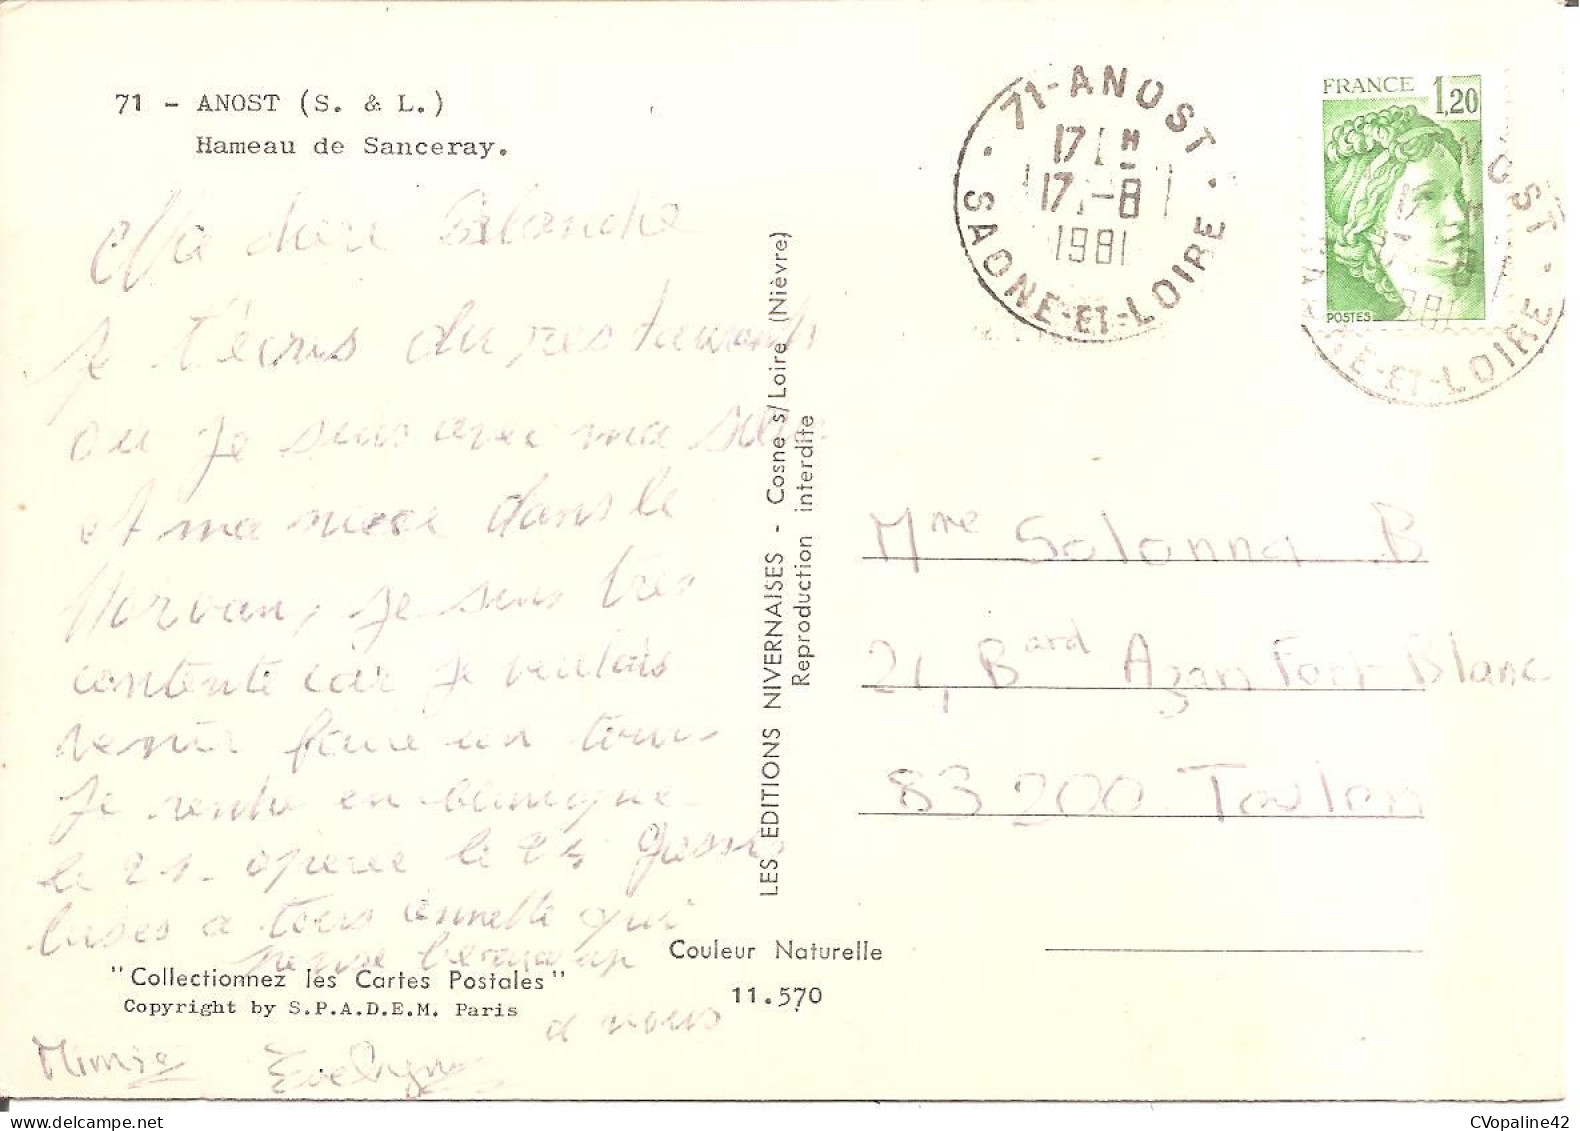 71 - ANOST (S. & L.)
Hameau de Sanceray.
Ma chere
Je t'écris du restaurant
ou je suis avec ma
et ma niece dans le
Morvan, je suis tres
contente car je voulais
venir faire un tour
Je rentre en
le 21. operee le 25
a tous qui
pense beaucoup
a nous
Mimie Evelyne
"Collectionnez les Cartes Postales"
Copyright by S.P.A.D.E.M. Paris
LES EDITIONS NIVERNAISES - Cosne s/Loire (Nièvre)
Reproduction interdite
Couleur Naturelle
11.570
71-ANOST
17 H
17 -8
1981
SAONE-ET-LOIRE
FRANCE 1,20
POSTES
NOST
17 H
17 -8
981
NE-ET-LOIRE
Mme Solonna B
21, Bard Azan Fort Blanc
83200 Toulon
CVopaline42